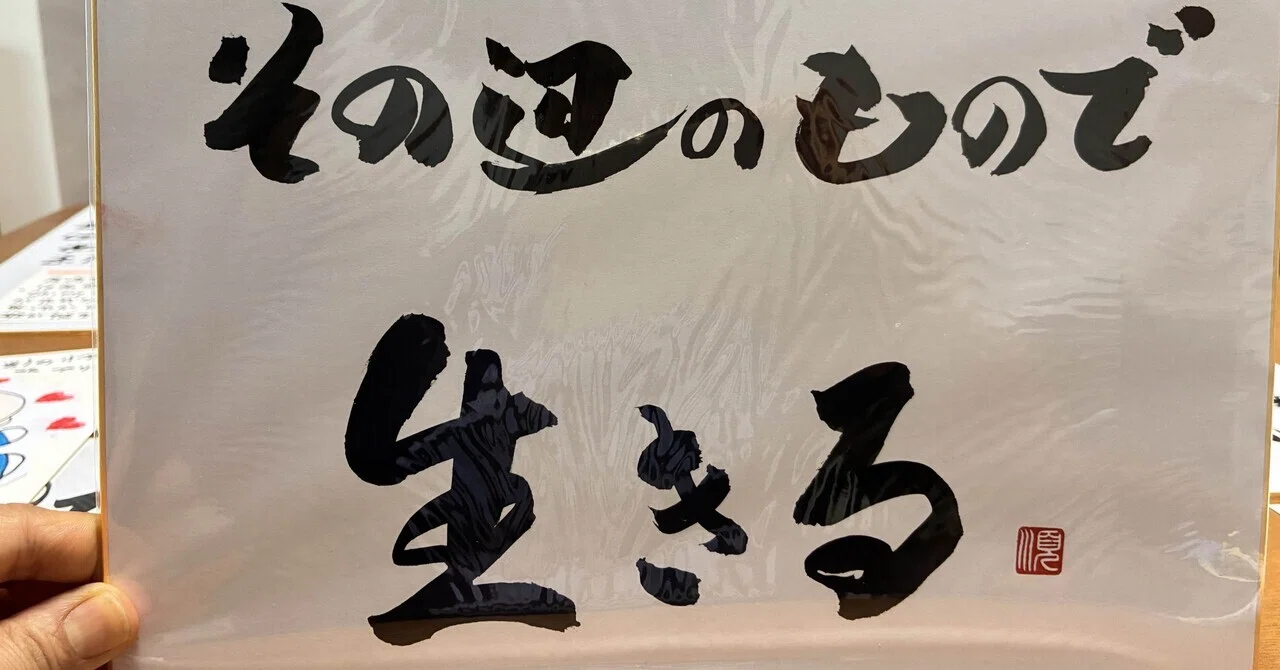 その辺のもので
生きる
順